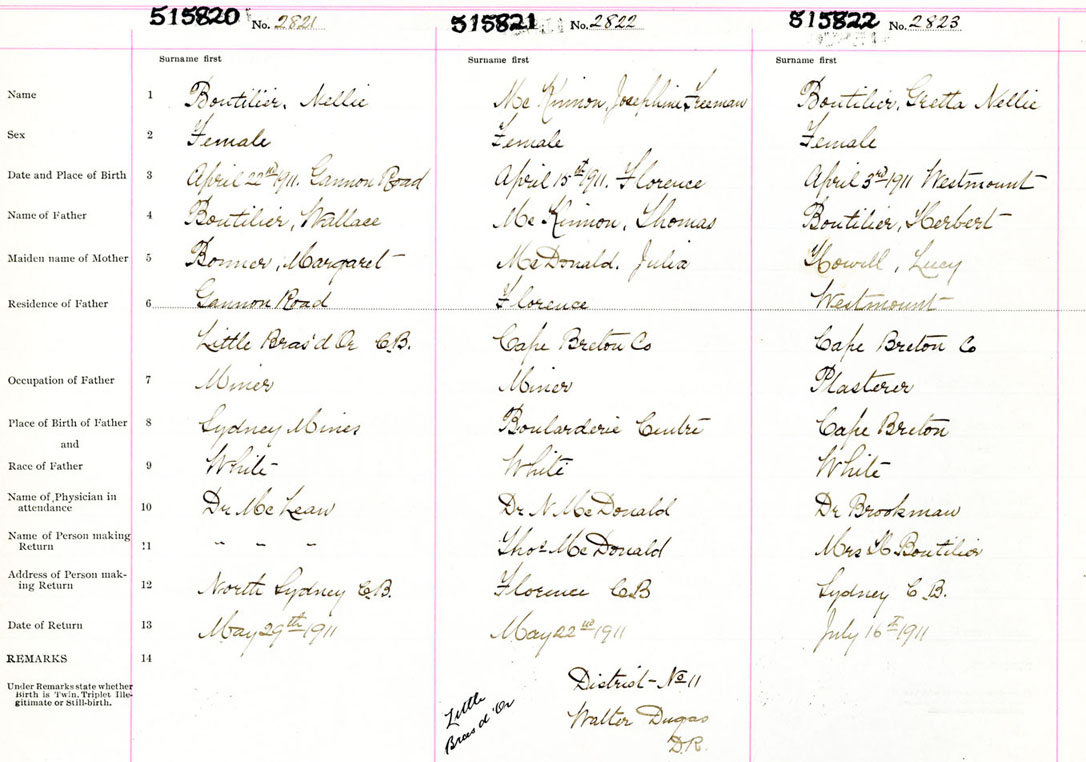 515820 No. 2821 515821 No. 2822 515822 No. 2823
Surname first Surname first Surname first
Name 1 Boutilier, Nellie Mc Kinnon, Josephine Freeman Boutilier, Gretta Nellie
Sex 2 Female Female Female
Date and Place of Birth 3 April 22nd 1911. Gannon Road April 15st 1911. Florence April 3rd 1911 Westmount
Name of Father 4 Boutilier, Wallace Mc Kinnon, Thomas Boutilier, Herbert
Maiden name of Mother 5 Bonner, Margaret McDonald. Julia Howell, Lucy
Residence of Father 6 Gannon Road Florence Westmount
Little Bras'd Or C.B. Cape Breton Co Cape Breton Co
Occupation of Father 7 Miner Miner Plasterer
Place of Birth of Father 8 Sydney Mines Boularderie Centre Cape Breton
and
Race of Father 9 White White White
Name of Physician in
attendance 10 Dr McLean Dr N McDonald Dr Brookman
Name of Person making
Return 11 " " " Thos McDonald Mrs H Boutilier
Address of Person mak-
ing Return 12 North Sydney C.B. Florence C.B Sydney C.B.
Date of Return 13 May 29th 1911 May 22nd 1911 July 16th 1911
REMARKS 14
Under Remarks state whether
Birth is Twin, Triplet Ille-
gitimate or Still-birth.
District No 11
Little
Bras d'Or
Walter Dugas
D.R.